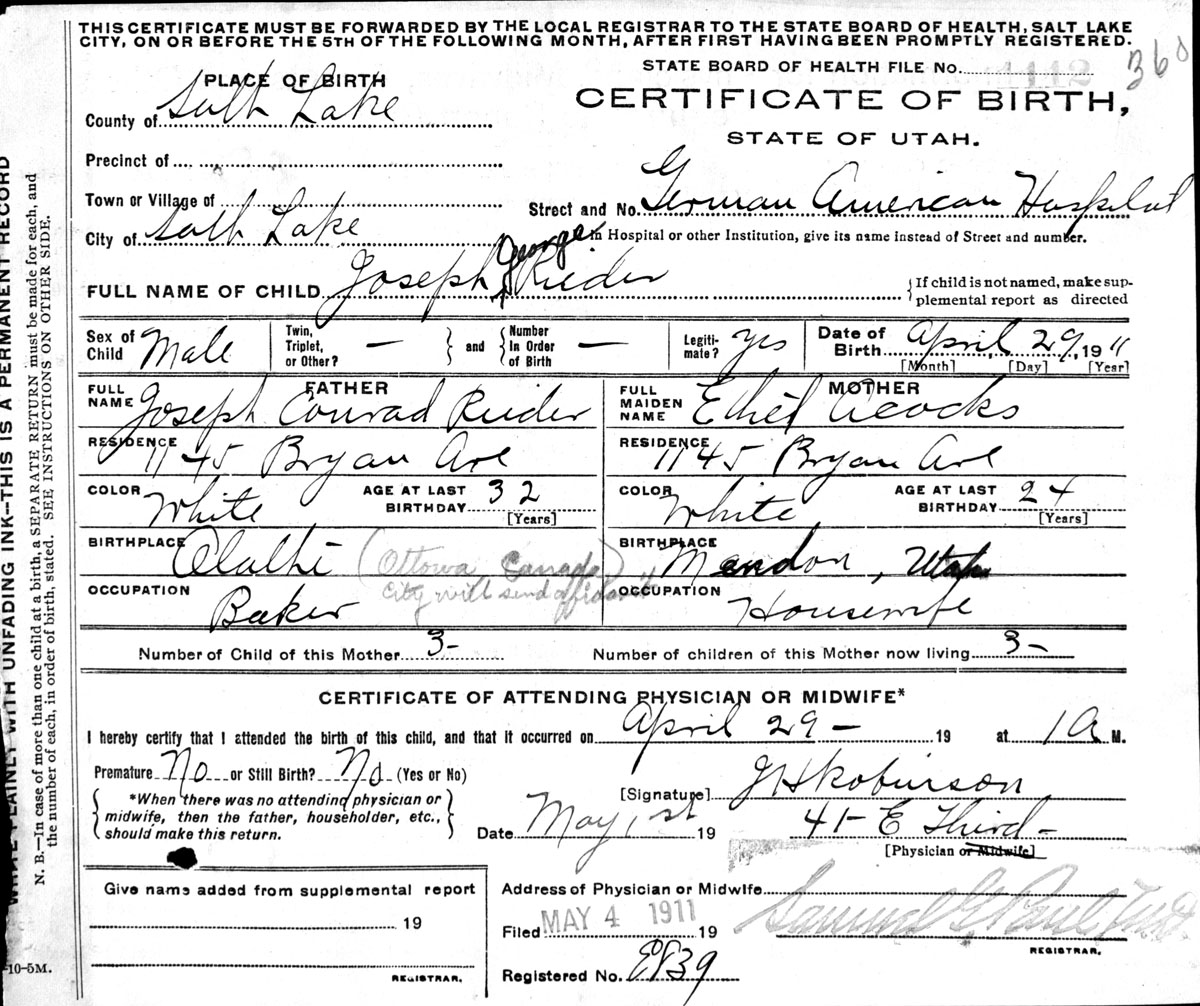 THIS CERTIFICATE MUST BE FORWARDED BY THE LOCAL REGISTRAR TO THE STATE BOARD OF HEALTH, SALT LAKE
CITY, ON OR BEFORE THE 5TH OF THE FOLLOWING MONTH, AFTER FIRST HAVING BEEN PROMPTLY REGISTERED.
STATE BOARD OF HEALTH FILE No. 1112 360
PLACE OF BIRTH
CERTIFICATE OF BIRTH,
STATE OF UTAH.
County of Salt Lake
Precinct of
Town or Village of
Street and No. German American Hospital
City of Salt Lake
In Hospital or other Institution, give its name instead of Street and number.
FULL NAME OF CHILD Joseph George Rieder
If child is not named, make sup-
plemental report as directed
Sex of Child Male
Twin, Triplet, or Other? —
and
Number In Order of Birth —
Legiti-mate? yes
Date of Birth April 29, 1911
[Month] [Day] [Year]
FATHER
FULL NAME Joseph Conrad Rieder
MOTHER
FULL MAIDEN NAME Ethel Acocks
RESIDENCE 1145 Bryan Ave
RESIDENCE 1145 Bryan Ave
COLOR White AGE AT LAST BIRTHDAY 32 [Years]
COLOR White AGE AT LAST BIRTHDAY 24 [Years]
BIRTHPLACE (Ottowa Canada)
City will send affidavit
BIRTHPLACE Mendon, Utah
OCCUPATION Baker
OCCUPATION Housewife
Number of Child of this Mother 3-
Number of children of this Mother now living 3-
CERTIFICATE OF ATTENDING PHYSICIAN OR MIDWIFE*
I hereby certify that I attended the birth of this child, and that it occurred on April 29 - 19 at 1 A M.
Premature No or Still Birth? No (Yes or No)
*When there was no attending physician or
midwife, then the father, householder, etc.,
should make this return.
[Signature] Robinson
Date May, 1st 19
41- E Third -
[Physician or Midwife]
Give name added from supplemental report
19
REGISTRAR.
Address of Physician or Midwife
Filed MAY 4 1911 19
Samuel G. Paul M.D.
REGISTRAR.
Registered No. E839
WRITE PLAINLY WITH UNFADING INK—THIS IS A PERMANENT RECORD
N. B.—In case of more than one child at a birth, a SEPARATE RETURN must be made for each, and
the number of each, in order of birth, stated. SEE INSTRUCTIONS ON OTHER SIDE.
-10-5M.